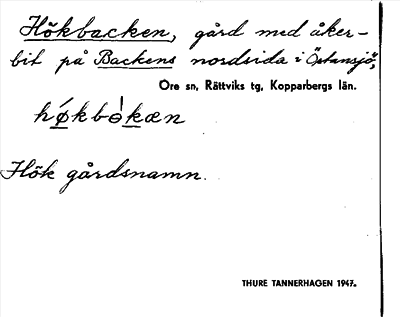 Hökbacken, gård med åker-
bit på Backens nordsida i Östansjö,
Ore sn, Rättviks tg, Kopparbergs län.
Hök gårdsnamn.
THURE TANNERHAGEN 1947.